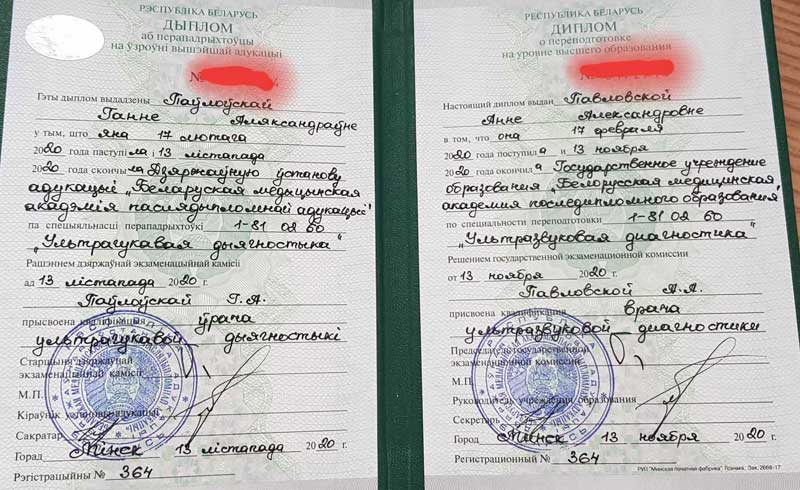 РЭСПУБЛІКА БЕЛАРУСЬ
ДЫПЛОМ
аб перападрыхтоўцы
на ўзроўні вышэйшай адукацыі
№
Гэты дыплом выдадзены Паўлоўскай
Ганне Аляксандраўне
у тым, што яна 17 лютага
2020 года паступіла і 13 лістапада
2020 года скончыла Дзяржаўную установу
адукацыі „Беларуская медыцынская
акадэмія паслядыпломнай адукацыі"
па спецыяльнасці перападрыхтоўкі 1-81 02 60
„Ультрагукавая дыягностыка"
Рашэннем дзяржаўнай экзаменацыйнай камісіі
ад 13 лістапада 2020 г.
Паўлоўскай Г.А.
прысвоена кваліфікацыя ўрача
ультрагукавой дыягностыкі
Старшыня дзяржаўнай
экзаменацыйнай камісіі
М.П.
Кіраўнік установы адукацыі
Сакратар
Горад Мінск 13 лістапада 2020 г.
Рэгістрацыйны № 364
РЕСПУБЛИКА БЕЛАРУСЬ
ДИПЛОМ
о переподготовке
на уровне высшего образования
№
Настоящий диплом выдан Павловской
Анне Александровне
в том, что она 17 февраля
2020 года поступила и 13 ноября
2020 года окончила Государственное учреждение
образования „Белорусская медицинская
академия последипломного образования"
по специальности переподготовки 1-81 02 60
„Ультразвуковая диагностика"
Решением государственной экзаменационной комиссии
от 13 ноября 2020 г.
Павловской А.А.
присвоена квалификация врача
ультразвуковой диагностики
Председатель государственной
экзаменационной комиссии
М.П.
Руководитель учреждения образования
Секретарь
Город Минск 13 ноября 2020 г.
Регистрационный № 364
РУП "Минская печатная фабрика" Гознака. Зак. 2668-17